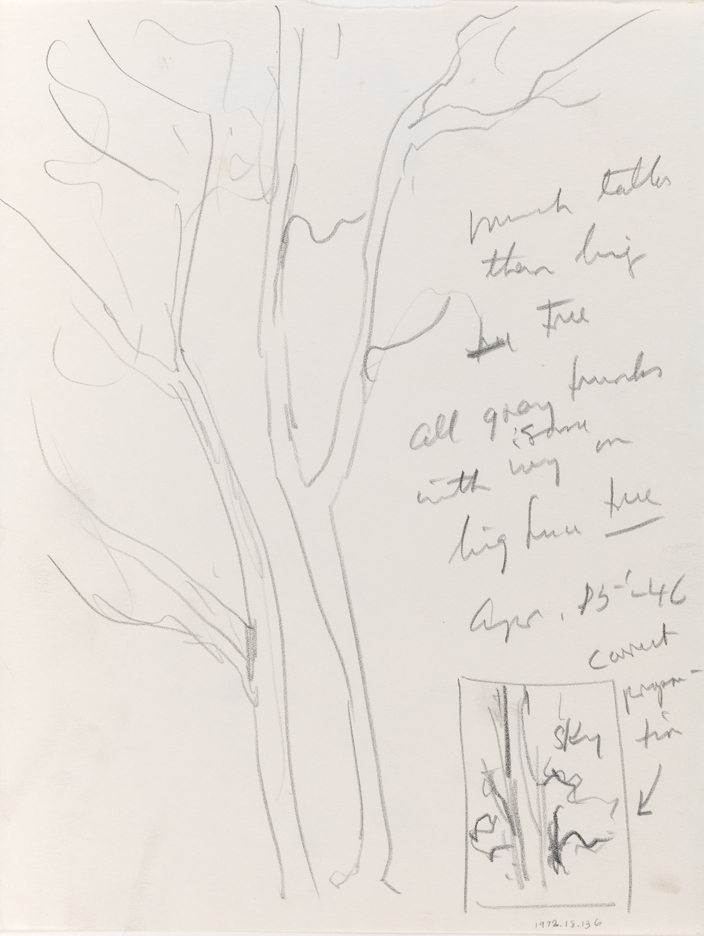 much taller
than big
Tree
all gray trunks
with ivy on
big tree
Apr. 25-46
correct
propor-
tion
sky
1972.18.136